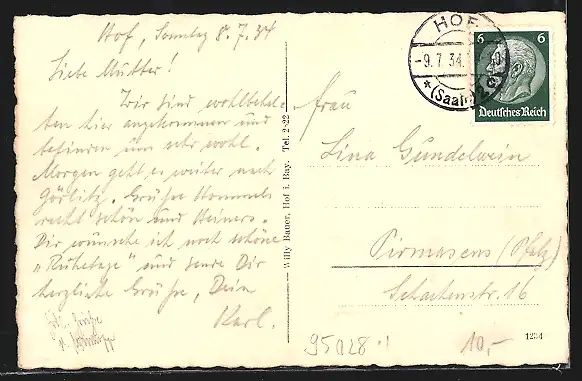 Hof, Sonntag 8.7.34
Liebe Mutter!
Wir sind wohlbehal-
ten hier angekommen und
befinden uns sehr wohl.
Morgen geht es weiter nach
Görlitz. Grüße Hommels
recht schön und Heiners.
Dir wünsche ich noch schöne
"Ruhetage" und sende Dir
herzliche Grüße, Dein
Karl.
Grüße
Willy Bauer, Hof i. Bay. Tel. 2-22
HOF
-9.7.34.
(Saale)
6 6
Deutsches Reich
Frau
Lina Gundelwein
Pirmasens (Pfalz)
Schachenstr. 16
1234
95028
10,-